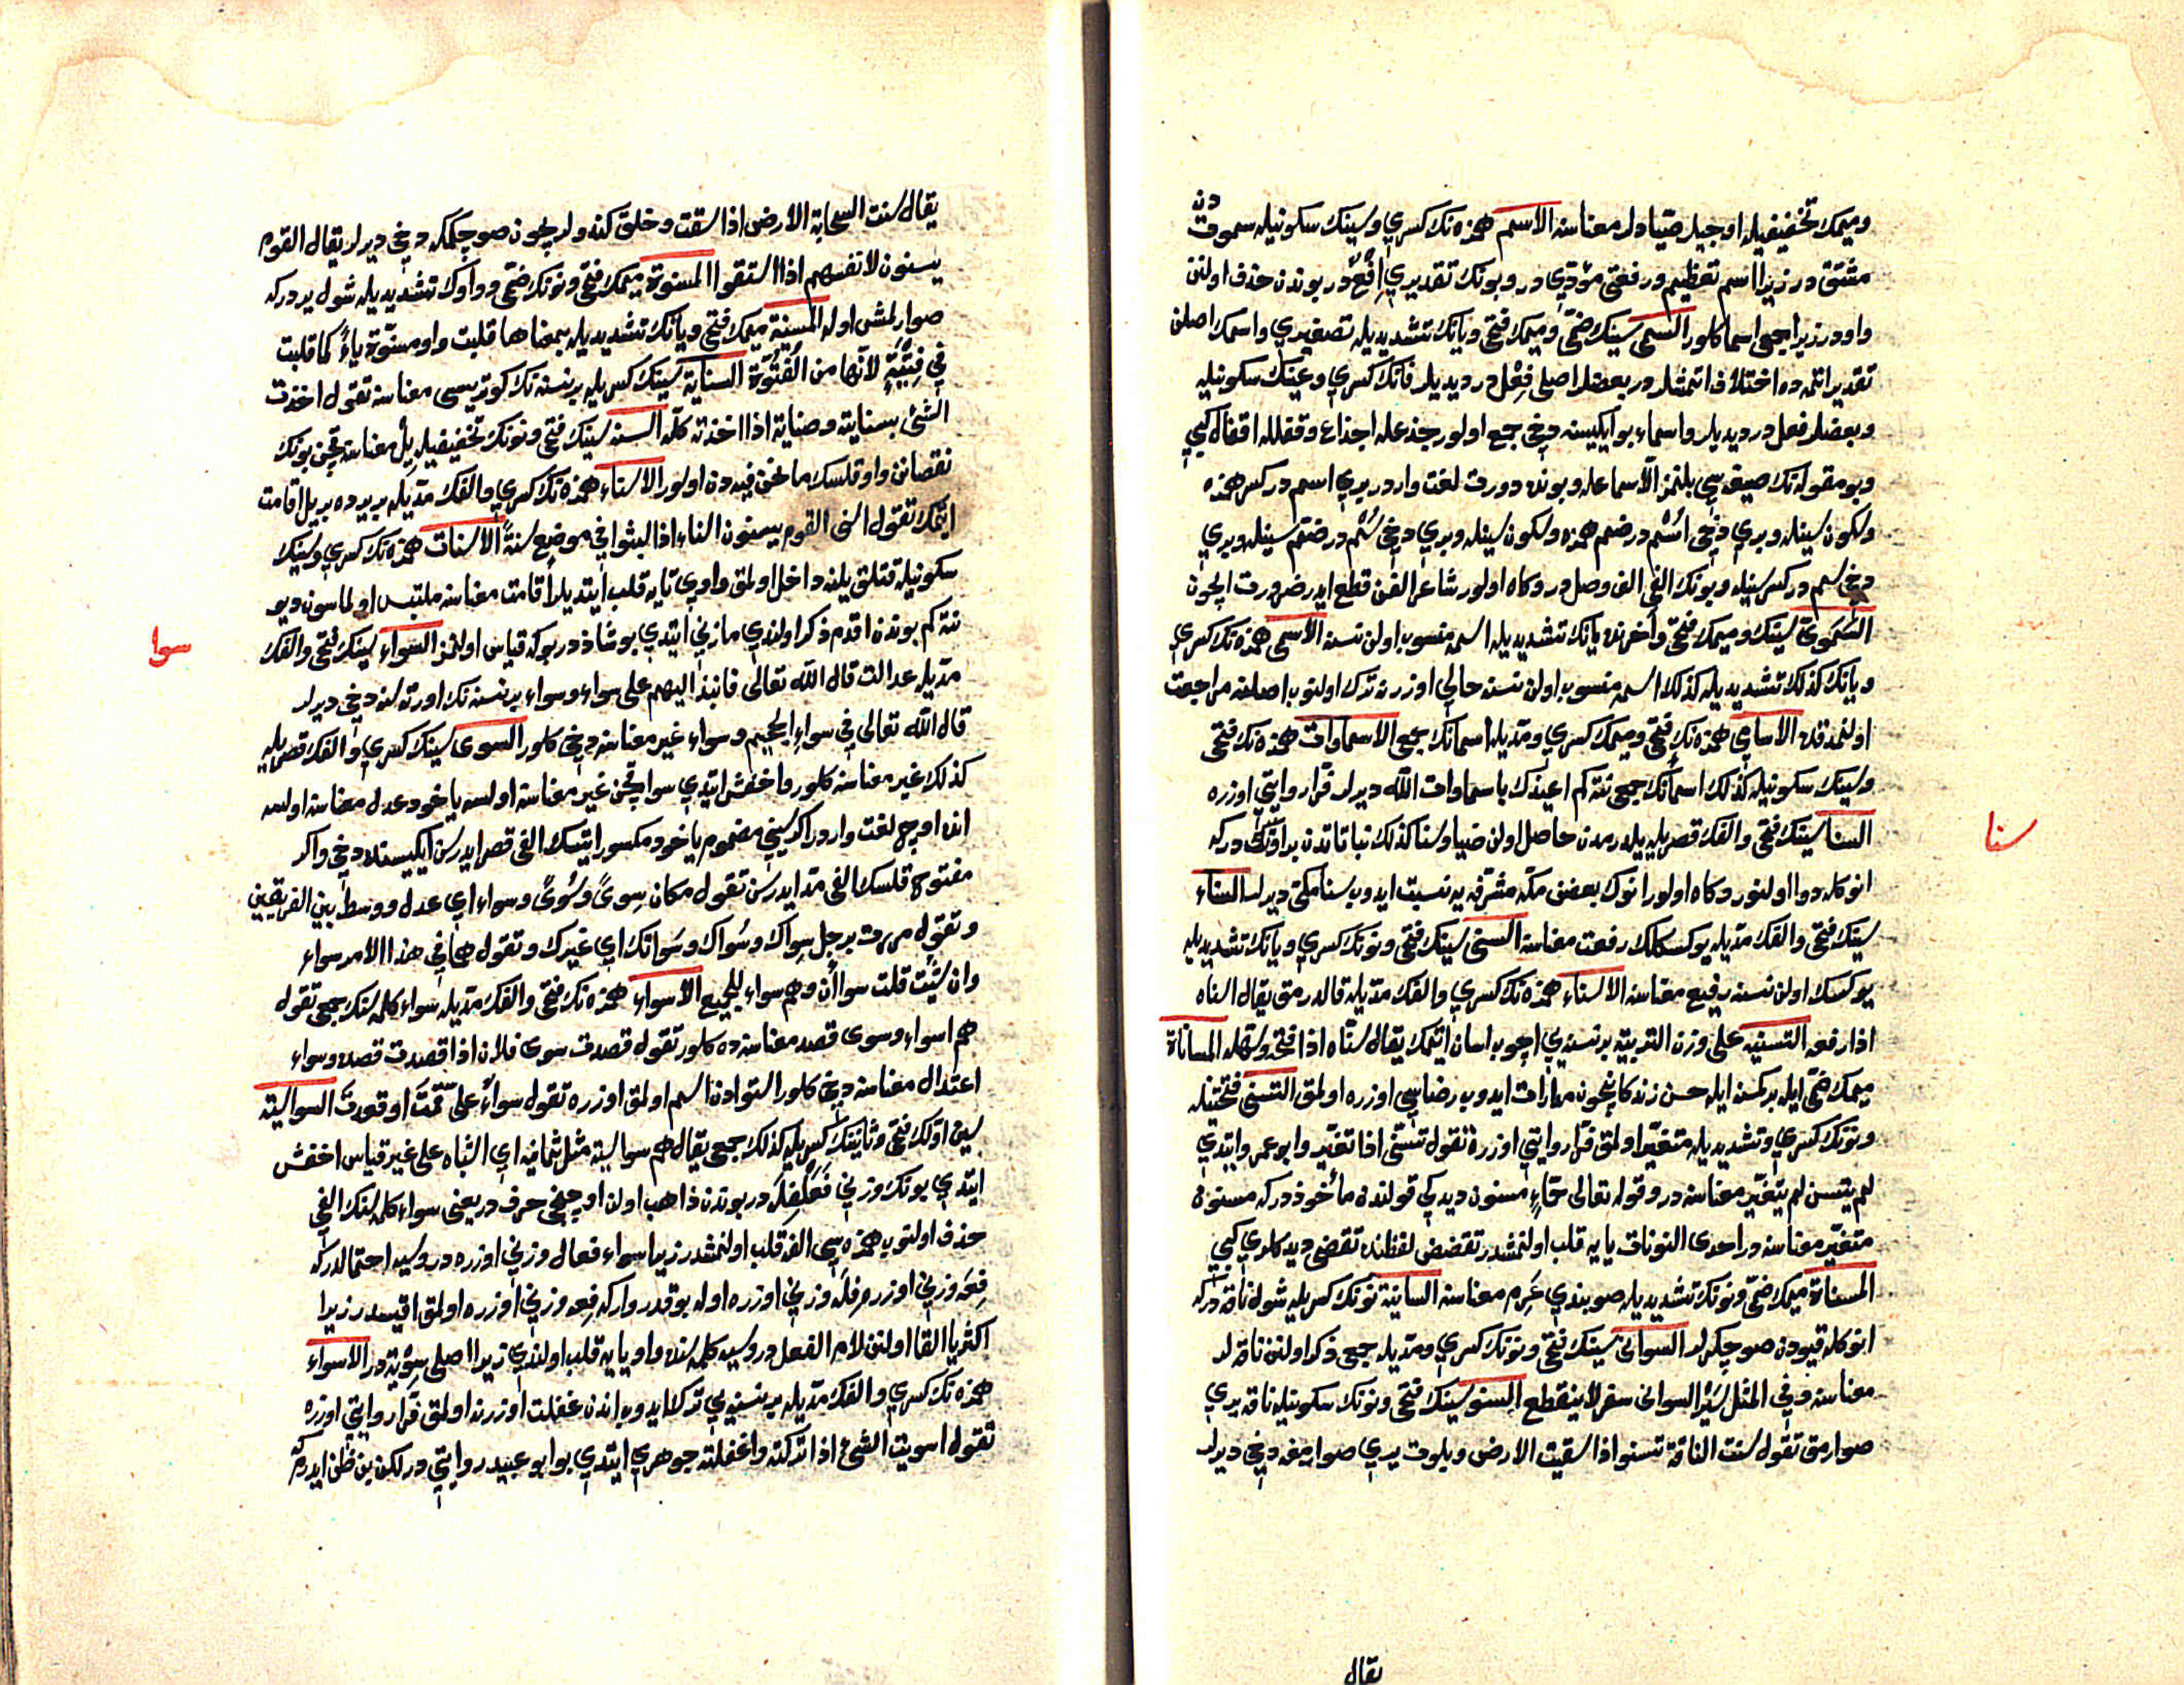 وميمك تخفيفيله اوجيلر صيادلر معناسنه الاسم همزه نك كسرى وسينك سكونيله سموت دن
مشتق در زيرا اسم تعظيم ورفعتى مؤدّى در وبونك تقديرى اِفْعٌ در بوندن حذف اولنن
واودر زيرا جمعى اسما كلور السمى سينك ضمّى وميمك فتحى ويانك تشديديله تصغيرى واسمك اصلنى
تقدير اتمه ده اختلاف اتمشلر در بعضلر اصلى فِعْل در ديديلر فانك كسرى وعينك سكونيله
وبعضلر فعل در ديديلر واسماء بو ايكيسنه دخى جمع اولور جذعله اجذاع وقفلله اقفال كبى
وبو مقوله نك صيغه سى بلنمز الّا سماعله وبونده دورت لغت واردر برى اسم در كسر همزه
وسكون سينله وبرى دخى اُسْم در ضم همزه وسكون سينله وبرى دخى سُم در ضم سينله وبرى
دخى سِم در كسر سينله وبونك الفى الف وصل در وكاه اولور شاعر الفنى قطع ايدر ضرورت ايچون
السَّمَوىّ سينك وميمك فتحى وآخرنده يانك تشديديله اسمه منسوب اولن نسنه الاسمى همزه نك كسرى
ويانك كذلك تشديديله كذلك اسمه منسوب اولن نسنه حالى اوزرنه ترك اولنوب اصلنه مراجعت
اولنمدقده الاسامى همزه نك فتحى وميمك كسرى ومدّيله اسمانك جمعى الاسماوات همزه نك فتحى
وسينك سكونيله كذلك اسمانك جمعى نته كم اعيذك باسماوات الله ديرلر فرّا روايتى اوزره
السنا سينك فتحى والفك قصريله يلدرمدن حاصل اولن ضيا وسنا كذلك نباتاتدن بر اوتك اسميدر كه
انوكله دوا اولنور وكاه اولور انوك بعضنى مكّه مشرّفه يه نسبت ايدوب سنا مكّى ديرلر السناء
سينك فتحى والفك مدّيله يوكسكلك رفعت معناسنه السنىّ سينك فتحى ونونك كسرى ويانك تشديديله
يوكسك اولن نسنه رفيع معناسنه الاسناء همزه نك كسرى والفك مدّيله قالدرمق يقال اسناه
اذا رفعه التسنيه على وزن التربيّة بر نسنه يى اچوب اسان اتمك يقال سنّاه اذا فتحه وسهّله المساناة
ميمك ضمّى ايله بر كمسنه ايله حسن زندكانيچون مدارات ايدوب رضاسى اوزره اولمق التسنّى فتحتينله
ونونك كسرى وتشديديله متغيّر اولمق فرّا روايتى اوزره تقول تسنّى اذا تغيّر وابو عمرو ايتدى
لم يتسنّ لم يتغيّر معناسنه در وقوله تعالى حمإٍ مسنون ديدكى قولندن مأخوذ دركه مسنون
متغيّر معناسنه در احدى النونات يايه قلب اولنمشدر تقضض لفظنده تقضى ديدكلرى كبى
المسناة ميمك ضمّى ونونك تشديديله صو بندى عَرِم معناسنه السانية نونك كسريله شول ناقه دركه
انوكله قيودن صو چكرلر السوانى سينك فتحى ونونك كسرى ومدّيله جمعى ذكر اولنن ناقه لر
معناسنه وفى المثل سَيْر السوانى سفر لا ينقطع السنو سينك فتحى ونونك سكونيله ناقه يرى
صوارمق تقول سنت الناقة تسنو اذا سقيت الارض وبلوت يرى صوارمغه دخى ديرلر
يقال
سنا
يقال سنت السحابة الارض اذا سقت وخلق كندولرچون صو چكمكه دخى ديرلر يقال القوم
يسنون لانفسهم اذا استقوا المسنوة ميمك فتحى ونونك ضمّى وواوك تشديديله شول يردركه
صوارلمش اوله المسنية ميمك فتحى ويانك تشديديله بمعناها قلبت واو مسنوّة ياءً كما قلبت
فى فتيّةٍ لانّها من الفتُوّة السناية سينك كسريله بر نسنه نك كوتريسى معناسنه تقول اخذت
الشئ بسنايته وصنايته اذا اخذته كلّه السنه سينك فتحى ونونك تخفيفيله ييل معناسنه قچن بونك
نقصاننى واو قلسك ما نحن فيه دن اولور الاسناء همزه نك كسرى والفك مدّيله بر يرده بر ييل اقامت
ايتمك تقول اسنى القوم يسنون اسناء اذا لبثوا فى موضع سنةً الاسنات همزه نك كسرى وسينك
سكونيله قتلق ييلنه داخل اولمق واوى تايه قلب ايتديلر اقامت معناسنه ملتبس اولماسون ديو
نته كم بوندن اقدم ذكر اولندى مازنى ايتدى بو شاذ در بوكه قياس اولنمز السواء سينك فتحى والفك
مدّيله عدالت قال الله تعالى فانبذ اليهم على سواء وسواء بر نسنه نك اورته سنه دخى ديرلر
قال الله تعالى فى سواء الجحيم وسواء غير معناسنه دخى كلور السوى سينك كسرى والفك قصريله
كذلك غير معناسنه كلور واخفش ايتدى سوا قچن غير معناسنه اولسه ياخود عدل معناسنه اولسه
انده اوچ لغت واردر اكر سينى مضموم ياخود مكسور ايتسك الفى قصر ايدرسن ايكيسنده دخى واكر
مفتوح قلسك الفى مدّ ايدرسن تقول مكان سِوىً وسُوىً وسواء اى عدل ووسط بين الفريقين
وتقول مررت برجل سِواك وسُواك وسَوائك اى غيرك وتقول هما فى هذا الامر سواء
وان شئت قلت سواآن وهم سواء للجميع الاسواء همزه نك فتحى والفك مدّيله سواء كلمه سنك جمعى تقول
هم اسواء وسوى قصد معناسنه ده كلور تقول قصدت سوى فلان اذا قصدت قصده وسواء
اعتدال معناسنه دخى كلور استوادن اسم اولمق اوزره تقول سواءٌ علىّ قمت او قعدت السواسية
سين اوّلك فتحى وثانينك كسريله كذلك جمعى يقال هم سواسية مثل ثمانية اى اشباه على غير قياس اخفش
ايتدى بونك وزنى فَعَلْفِلَه در بوندن ذاهب اولن اوچنجى حرف در يعنى سواء كلمه سنك الفى
حذف اولنوب همزه سى الفه قلب اولنمشدر زيرا سواء فعال وزنى اوزره در وسيه احتمالدركه
فِعَه وزنى اوزره فِلَه وزنى اوزره اوله بو قدر واركه فعه وزنى اوزره اولمق اقيسدر زيرا
اكثريا القا اولنن لام الفعل در وسيه كلمه سنده واو يايه قلب اولندى زيرا اصلى سِوْية در الاسواء
همزه نك كسرى والفك مدّيله بر نسنه يى ترك ايدوب اندن غفلت اوزرنه اولمق فرّا روايتى اوزره
تقول اسويت الشئ اذا تركته واغفلته جوهرى ايتدى بو ابو عبيد روايتى در لكن بن ظن ايدرم كه
سوا